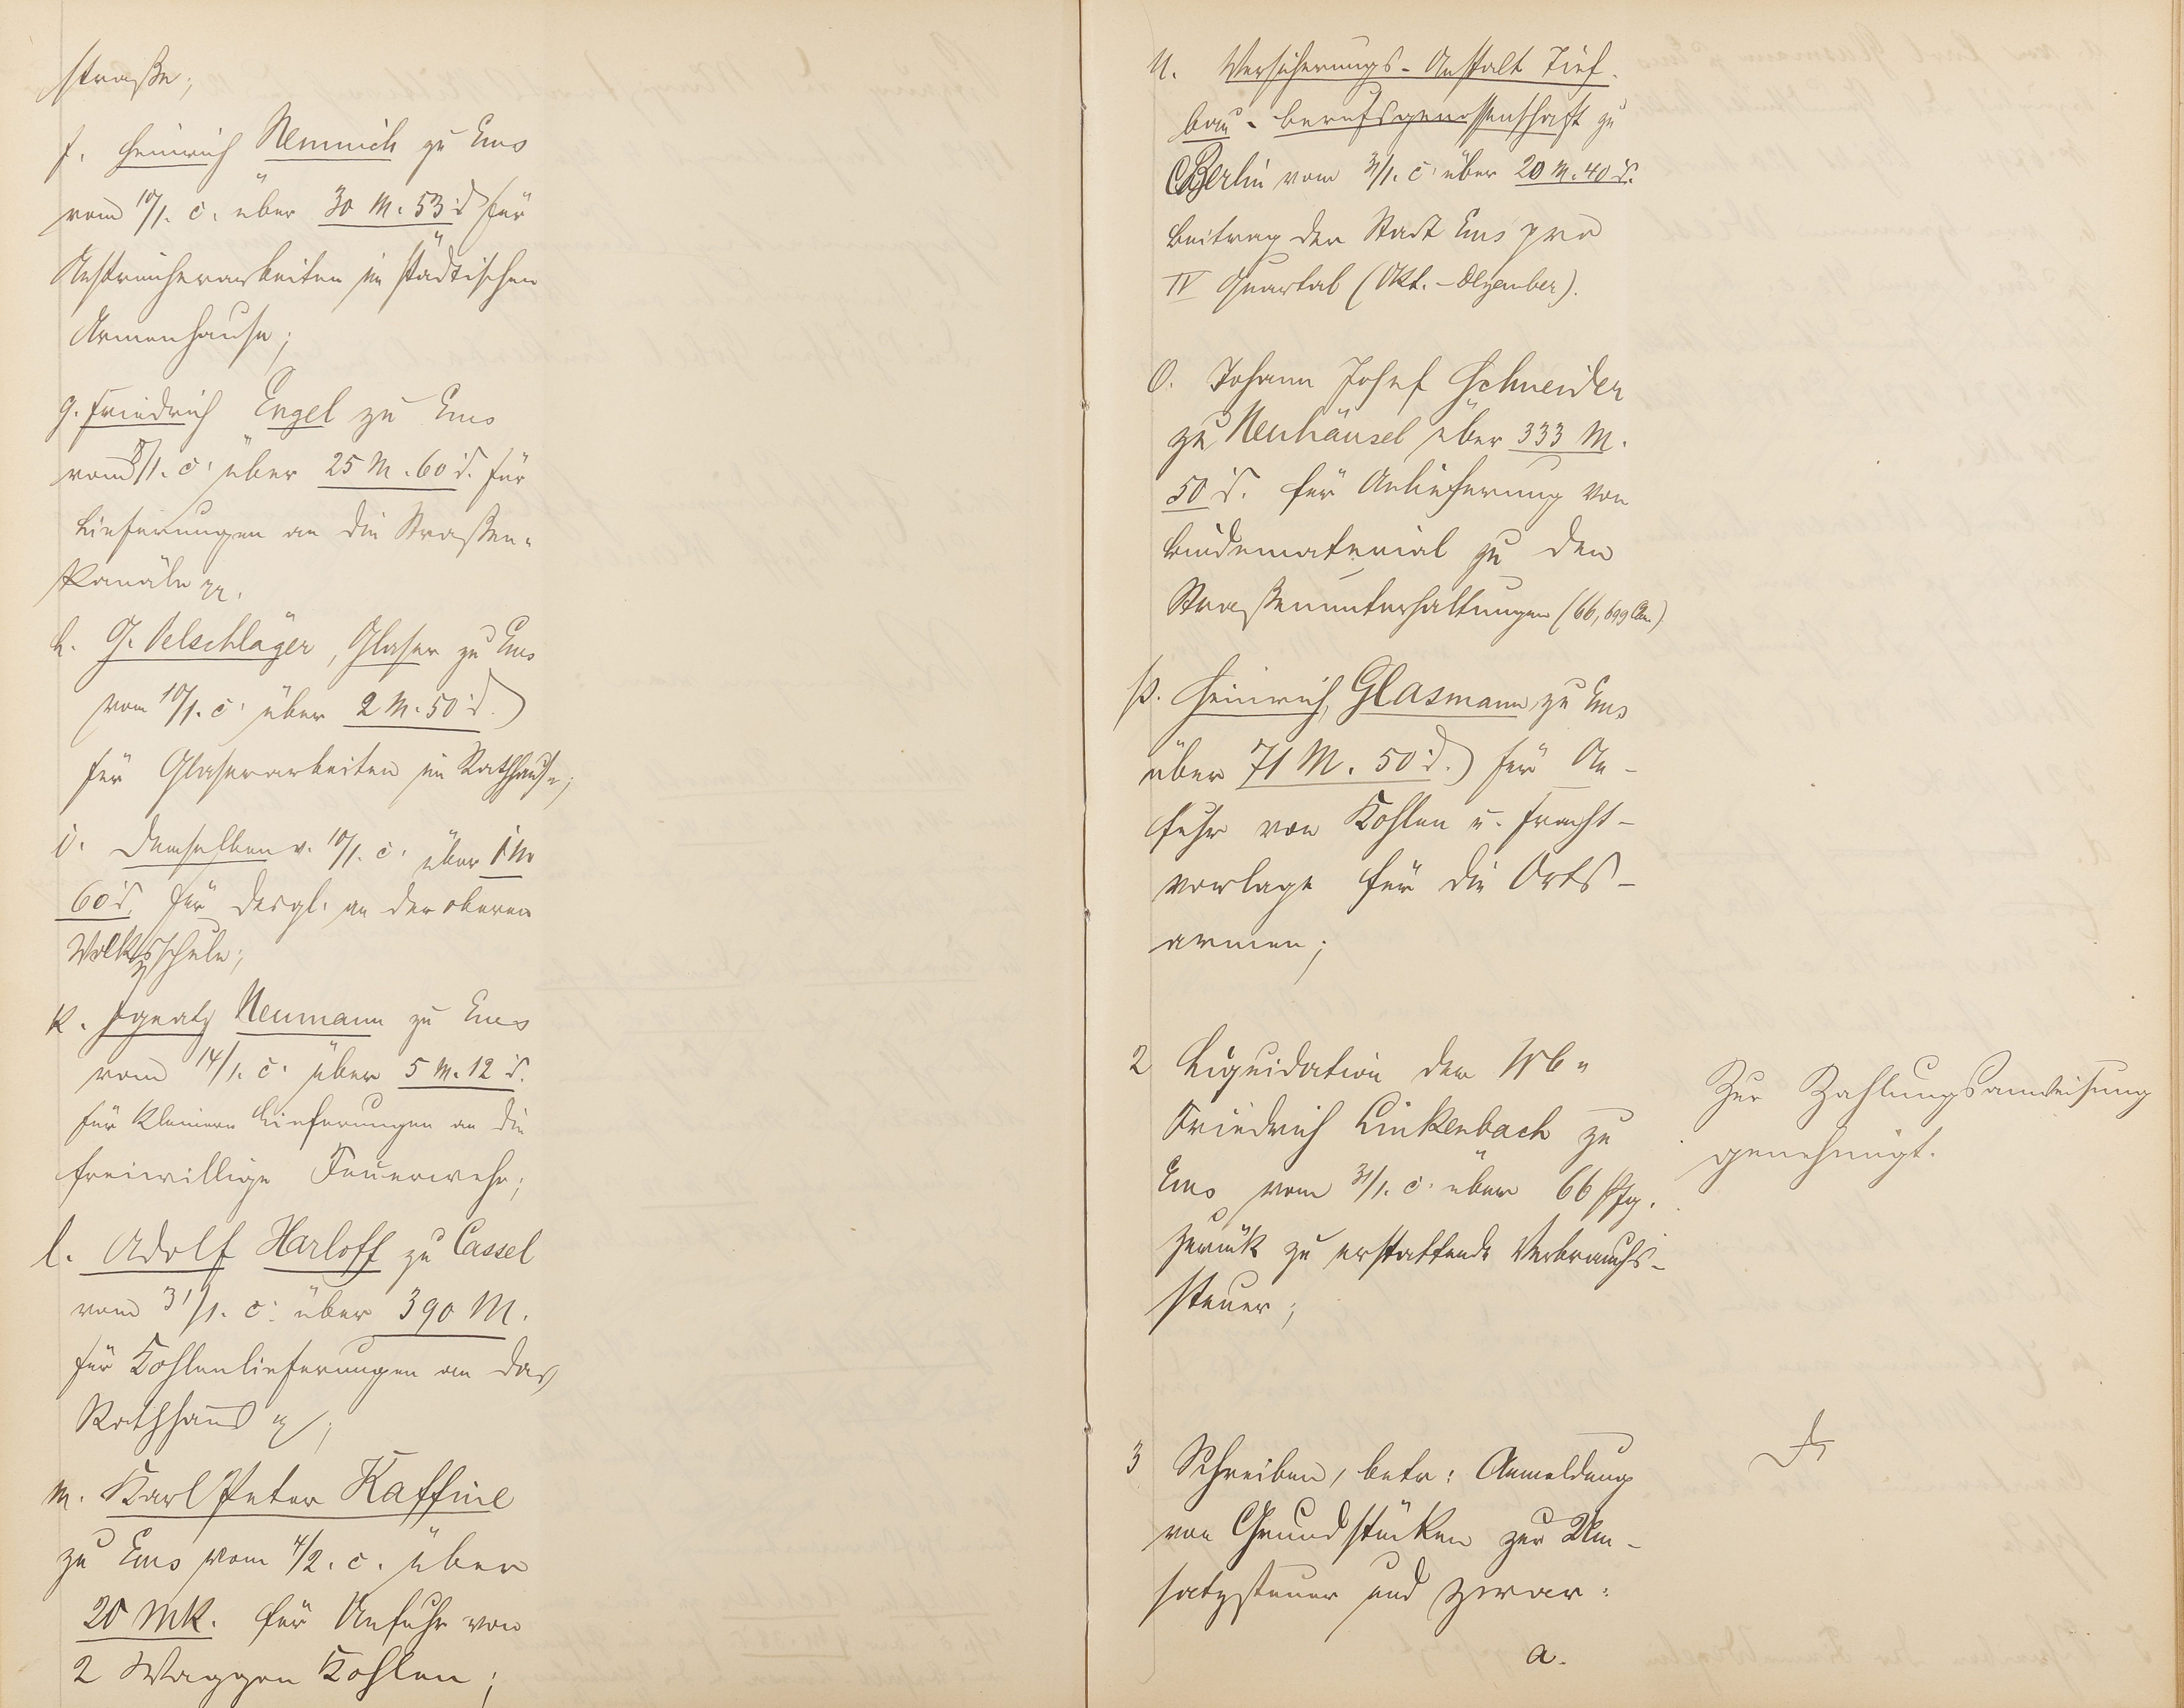 straße;
f. Heinrich Nemnich zu Ems
vom 10/1. c. über 30 M. 53 d für
Anstreicherarbeiten im städtischen
Armenhause;
g. Friedrich Engel zu Ems
vom 8/1. c. über 25 M. 60 d. für
Lieferungen an die Straßen-
kanäle pp.
h. G. Oelschläger, Glaser zu Ems
vom 10/1. c. über 2 M. 50 d.)
für Glaserarbeiten im Rathhause;
i. Demselben v. 10/1. c. über 1 M
60 d. für desgl. an der oberen
Volksschule;
k. Ignatz Neumann zu Ems
vom 14/1. c. über 5 M. 12 d.
für kleinere Lieferungen an die
freiwillige Feuerwehr;
l. Adolf Harloff zu Cassel
vom 31/1. c. über 390 M.
für Kohlenlieferungen an das
Rathhaus
m. Karl Peter Kaffine
zu Ems vom 4/2. c. über
20 Mk. für Anfuhr von
2 Waggon Kohlen;
n. Versicherungs-Anstalt Tief-
bau-berufsgenossenschaft zu
Berlin vom 31/1. c. über 20 M. 40 d.
Beitrag der Stadt Ems pro
IV Quartal (Okt. - Dezember).
o. Johann Josef Schneider
zu Neuhäusel über 333 M.
50 d. für Anlieferung von
Bindematerial zu den
Straßenunterhaltungen (66,699 Cbm.)
p. Heinrich Glasmann zu Ems
über 71 M. 50 d.) für An-
fuhr von Kohlen u. Fracht-
vorlage für die Orts-
armen;
2 Liquidation der Wb.
Friedrich Linkenbach zu
Ems vom 31/1. c. über 66 Pfg.
zurück zu erstattende Verbrauchs-
steuer;
Zur Zahlungsanweisung
genehmigt.
3 Schreiben, betr: Anmeldung
von Grundstücken zur Um-
satzsteuer und zwar:
a.